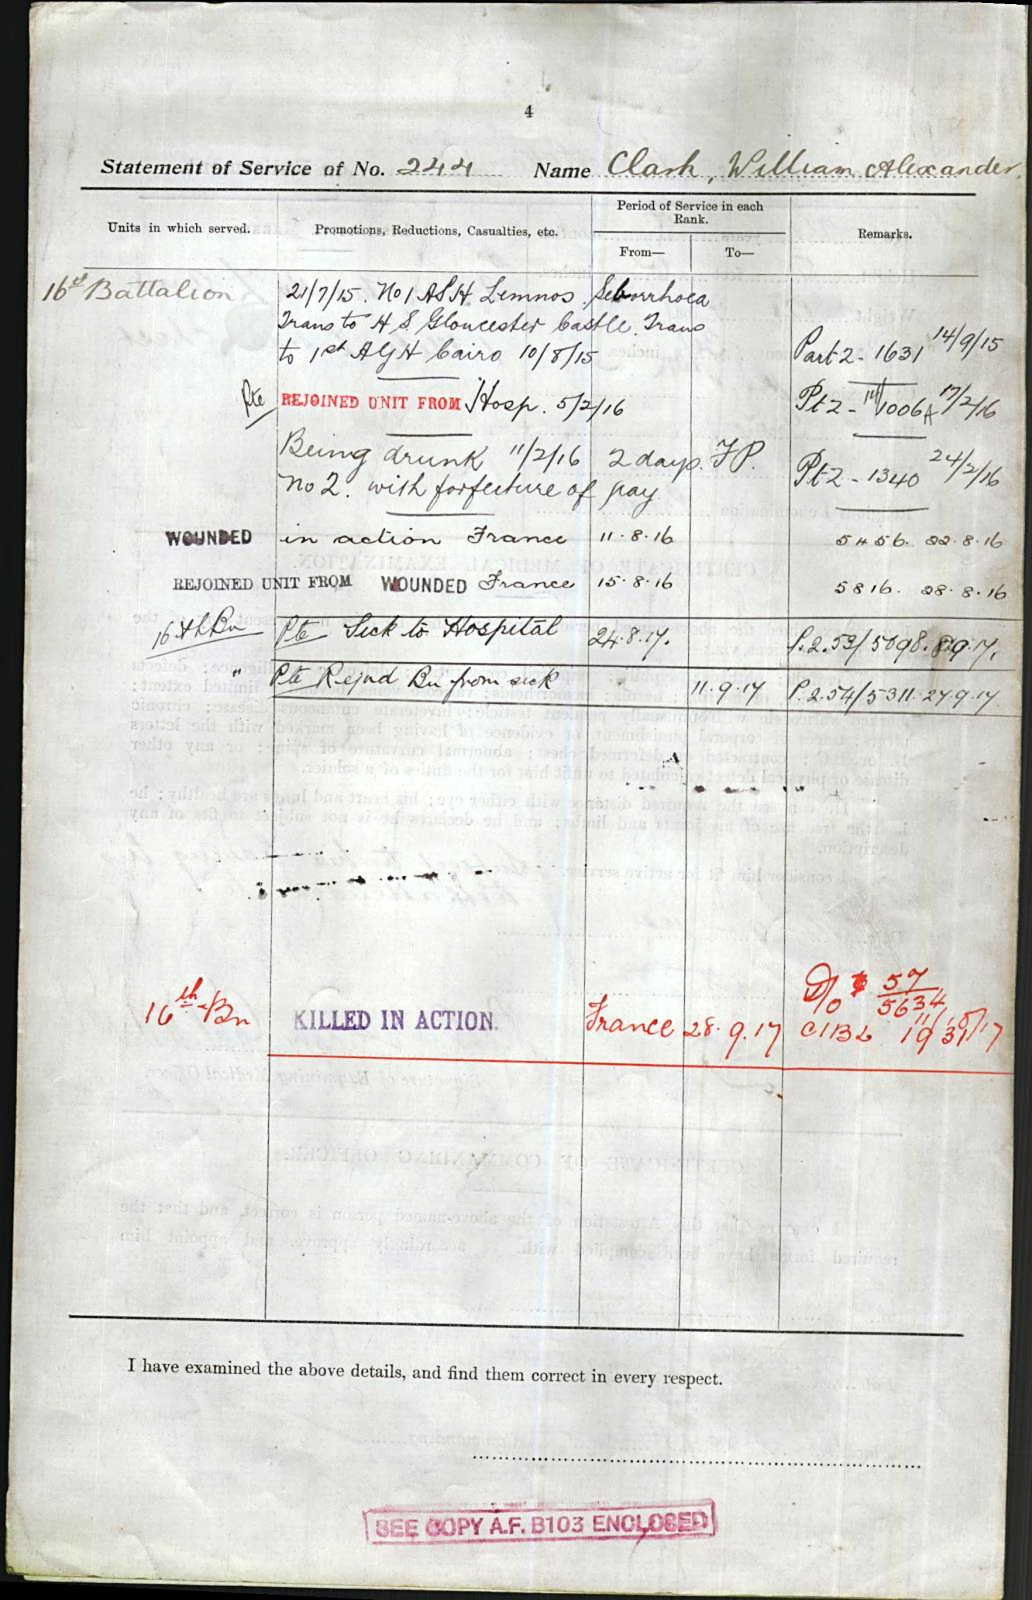 4
Statement of Service of No. 244 Name Clark, William Alexander.
Units in which served.
Promotions, Reductions, Casualties, etc.
Period of Service in each Rank.
From—
To—
Remarks.
16th Battalion
21/7/15. No 1 ASH Lemnos. Seborrhoea
Trans to H S Gloucester Castle. Trans
to 1st AGH Cairo 10/8/15
Part 2 - 1631 14/9/15
Pte REJOINED UNIT FROM Hosp. 5/2/16
Pt 2 - 1006A 17/2/16
Being drunk 11/2/16 2 days. F.P.
No 2. with forfeiture of pay
Pt 2 - 1340 24/2/16
WOUNDED in action France 11.8.16 5456. 22.8.16
REJOINED UNIT FROM WOUNDED France 15.8.16 5816. 28.8.16
16th Bn Pte Sick to Hospital 24.8.17. P.2.53/5098. 8.9.17.
" Pte Rejnd Bn from sick 11.9.17 P.2.54/5311. 27.9.17
16th Bn KILLED IN ACTION. France 28.9.17
D/O 57
5634
C1132
I have examined the above details, and find them correct in every respect.
SEE COPY A.F. B103 ENCLOSED